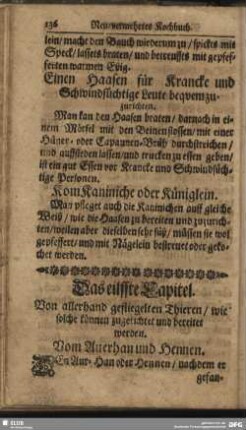 136 Neu-vermehrtes Kochbuch.
lein/ mache den Bauch wiederum zu/ spickts mit
Speck/ lassets braten/ und betreuffts mit gepfef-
ferten warmen Essig.
Einen Haasen für Krancke und
Schwindsüchtige Leute beqvem zu-
zurichten.
Man kan den Haasen braten/ darnach in ei-
nem Mörsel mit den Beinen stossen/ mit einer
Hüner- oder Capaunen-Brüh durchstreichen/
und auffsieden lassen/ und trucken zu essen geben/
ist ein gut Essen vor Krancke und Schwindsüch-
tige Personen.
Vom Kaniniche oder Küniglein.
Man pfleget auch die Kaninichen auff gleiche
Weiß/ wie die Haasen zu bereiten und zuzurich-
ten/ weilen aber dieselben sehr süß/ müssen sie wol
gepfeffert/ und mit Nägelein bestreuet oder geko-
chet werden.
Das eilffte Capitel.
Von allerhand gefliegelten Thieren/ wie
solche können zugerichtet und bereitet
werden.
Vom Auerhan und Hennen.
En Aur-Han oder Hennen/ nachdem er
gefan-